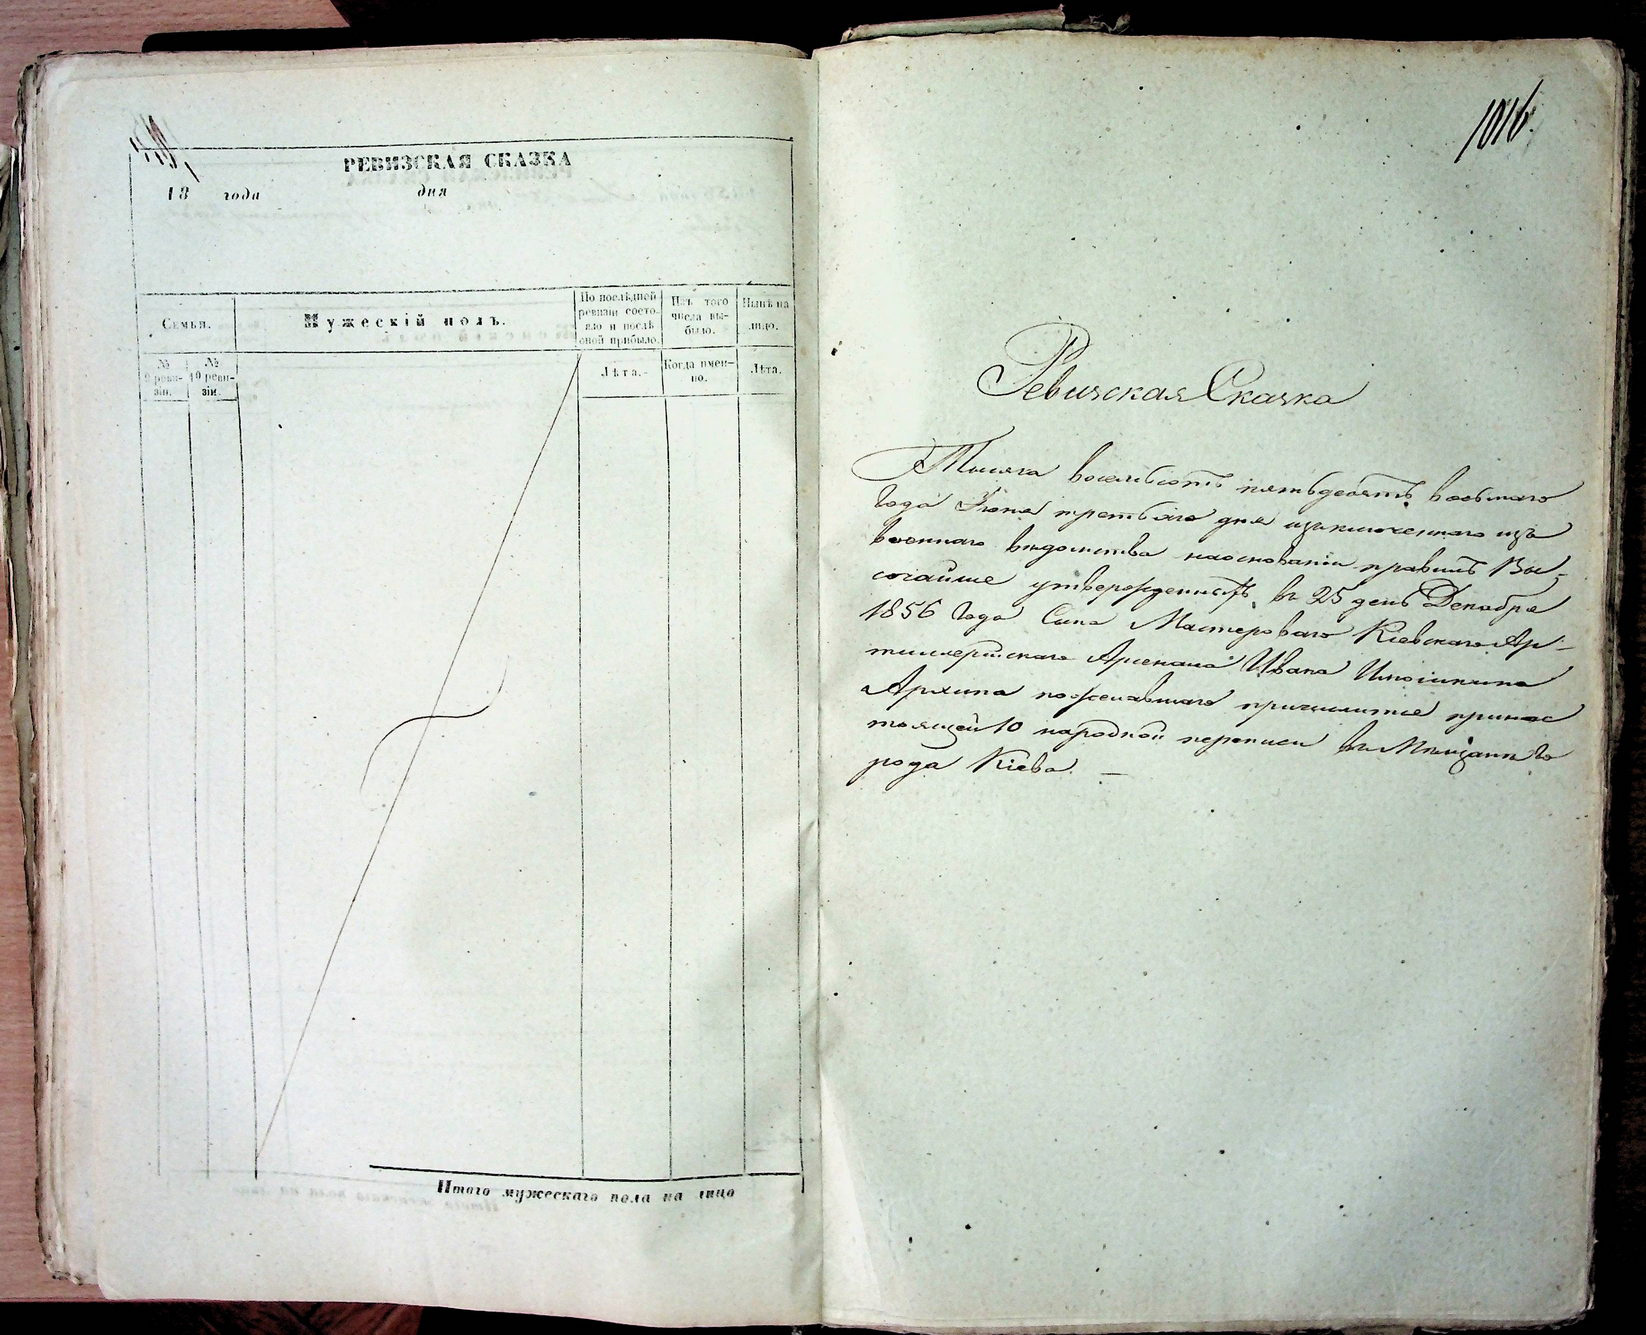 РЕВИЗСКАЯ СКАЗКА
18 года дня
Семьи.
Мужескій полъ.
По послѣдней ревизіи состояло и послѣ оной прибыло.
Изъ того числа выбыло.
Нынѣ на лицо.
№ 9 ревизіи.
№ 10 ревизіи.
Лѣта.
Когда именно.
Лѣта.
Итого мужескаго пола на лицо
1016.
Ревизская Сказка
Тысяча восемьсотъ пятьдесятъ восьмаго
Года Іюня третьяго дня изключеннаго изъ
военнаго вѣдомства наоснованіи правилъ Вы-
сочайше утвержденныхъ въ 25 день Декабря
1856 Года Сына Мастероваго Кіевскаго Ар-
тиллерійскаго Арсенала Ивана
Архипа пожелавшаго причислится принас
тоящей 10 народной переписи въ Мѣщани Го
рода Кіева. —